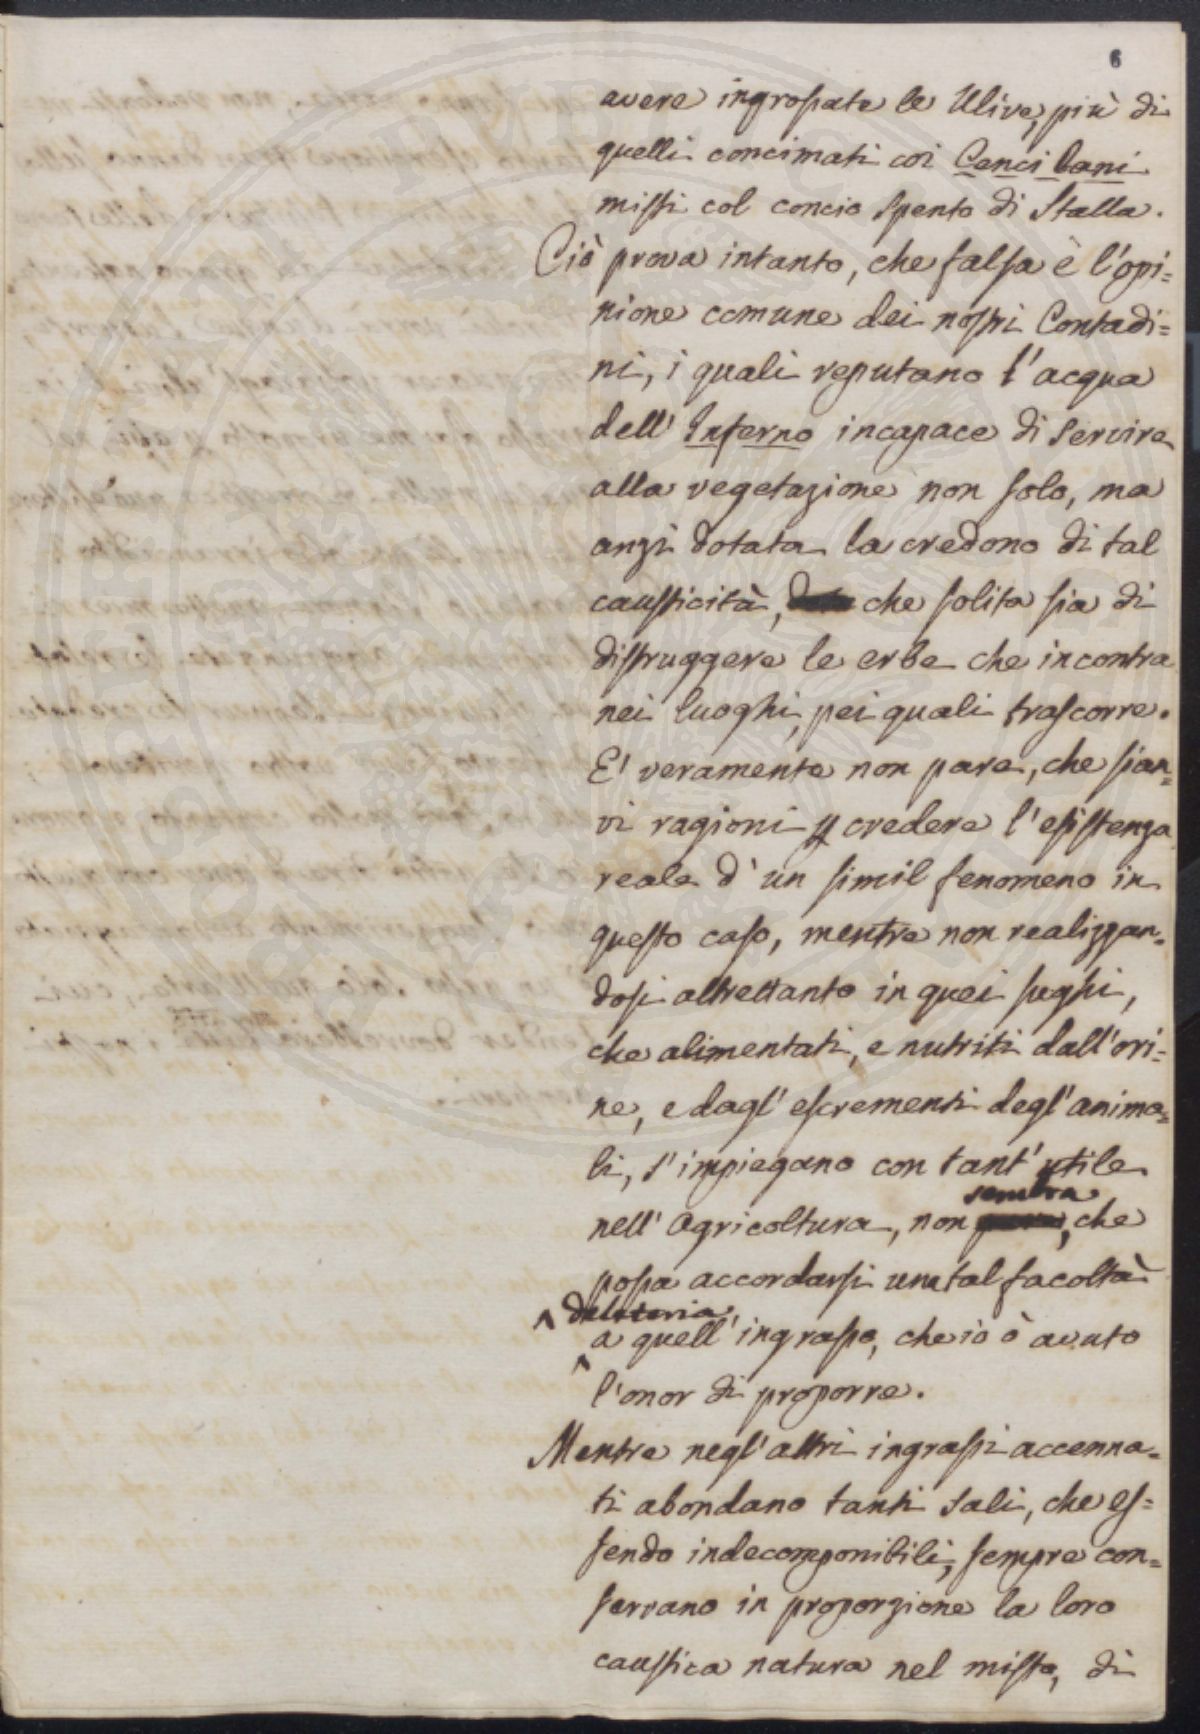 6
avere ingrossate le Ulive, più di
quelli concimati coi Cenci lani
missi col concio spento di Stalla.
Ciò prova intanto, che falsa è l'opi=
nione comune dei nostri Contadi=
ni, i quali reputano l'acqua
dell' Inferno incapace di servire
alla vegetazione non solo, ma
anzi dotata la credono di tal
causticità, che solita sia di
distruggere le erbe che incontra
nei luoghi, pei quali trascorre.
E' veramente non pare, che sian=
vi ragioni p credere l'esistenza
reale d' un simil fenomeno in
questo caso, mentre non realizzan=
dosi altrettanto in quei sughi,
che alimentati, e nutriti dall'ori=
ne, e dagl' escrementi degl' anima=
li, s'impiegano con tant' utile
sembra
nell' Agricoltura, non pare, che
possa accordarsi una tal facoltà
^ deleteria
a quell' ingrasso, che io ò avuto
^
l'onor di proporre.
Mentre negl' altri ingrassi accenna=
ti abondano tanti sali, che es=
sendo indecomponibili, sempre con=
servano in proporzione la loro
caustica natura nel misto, di